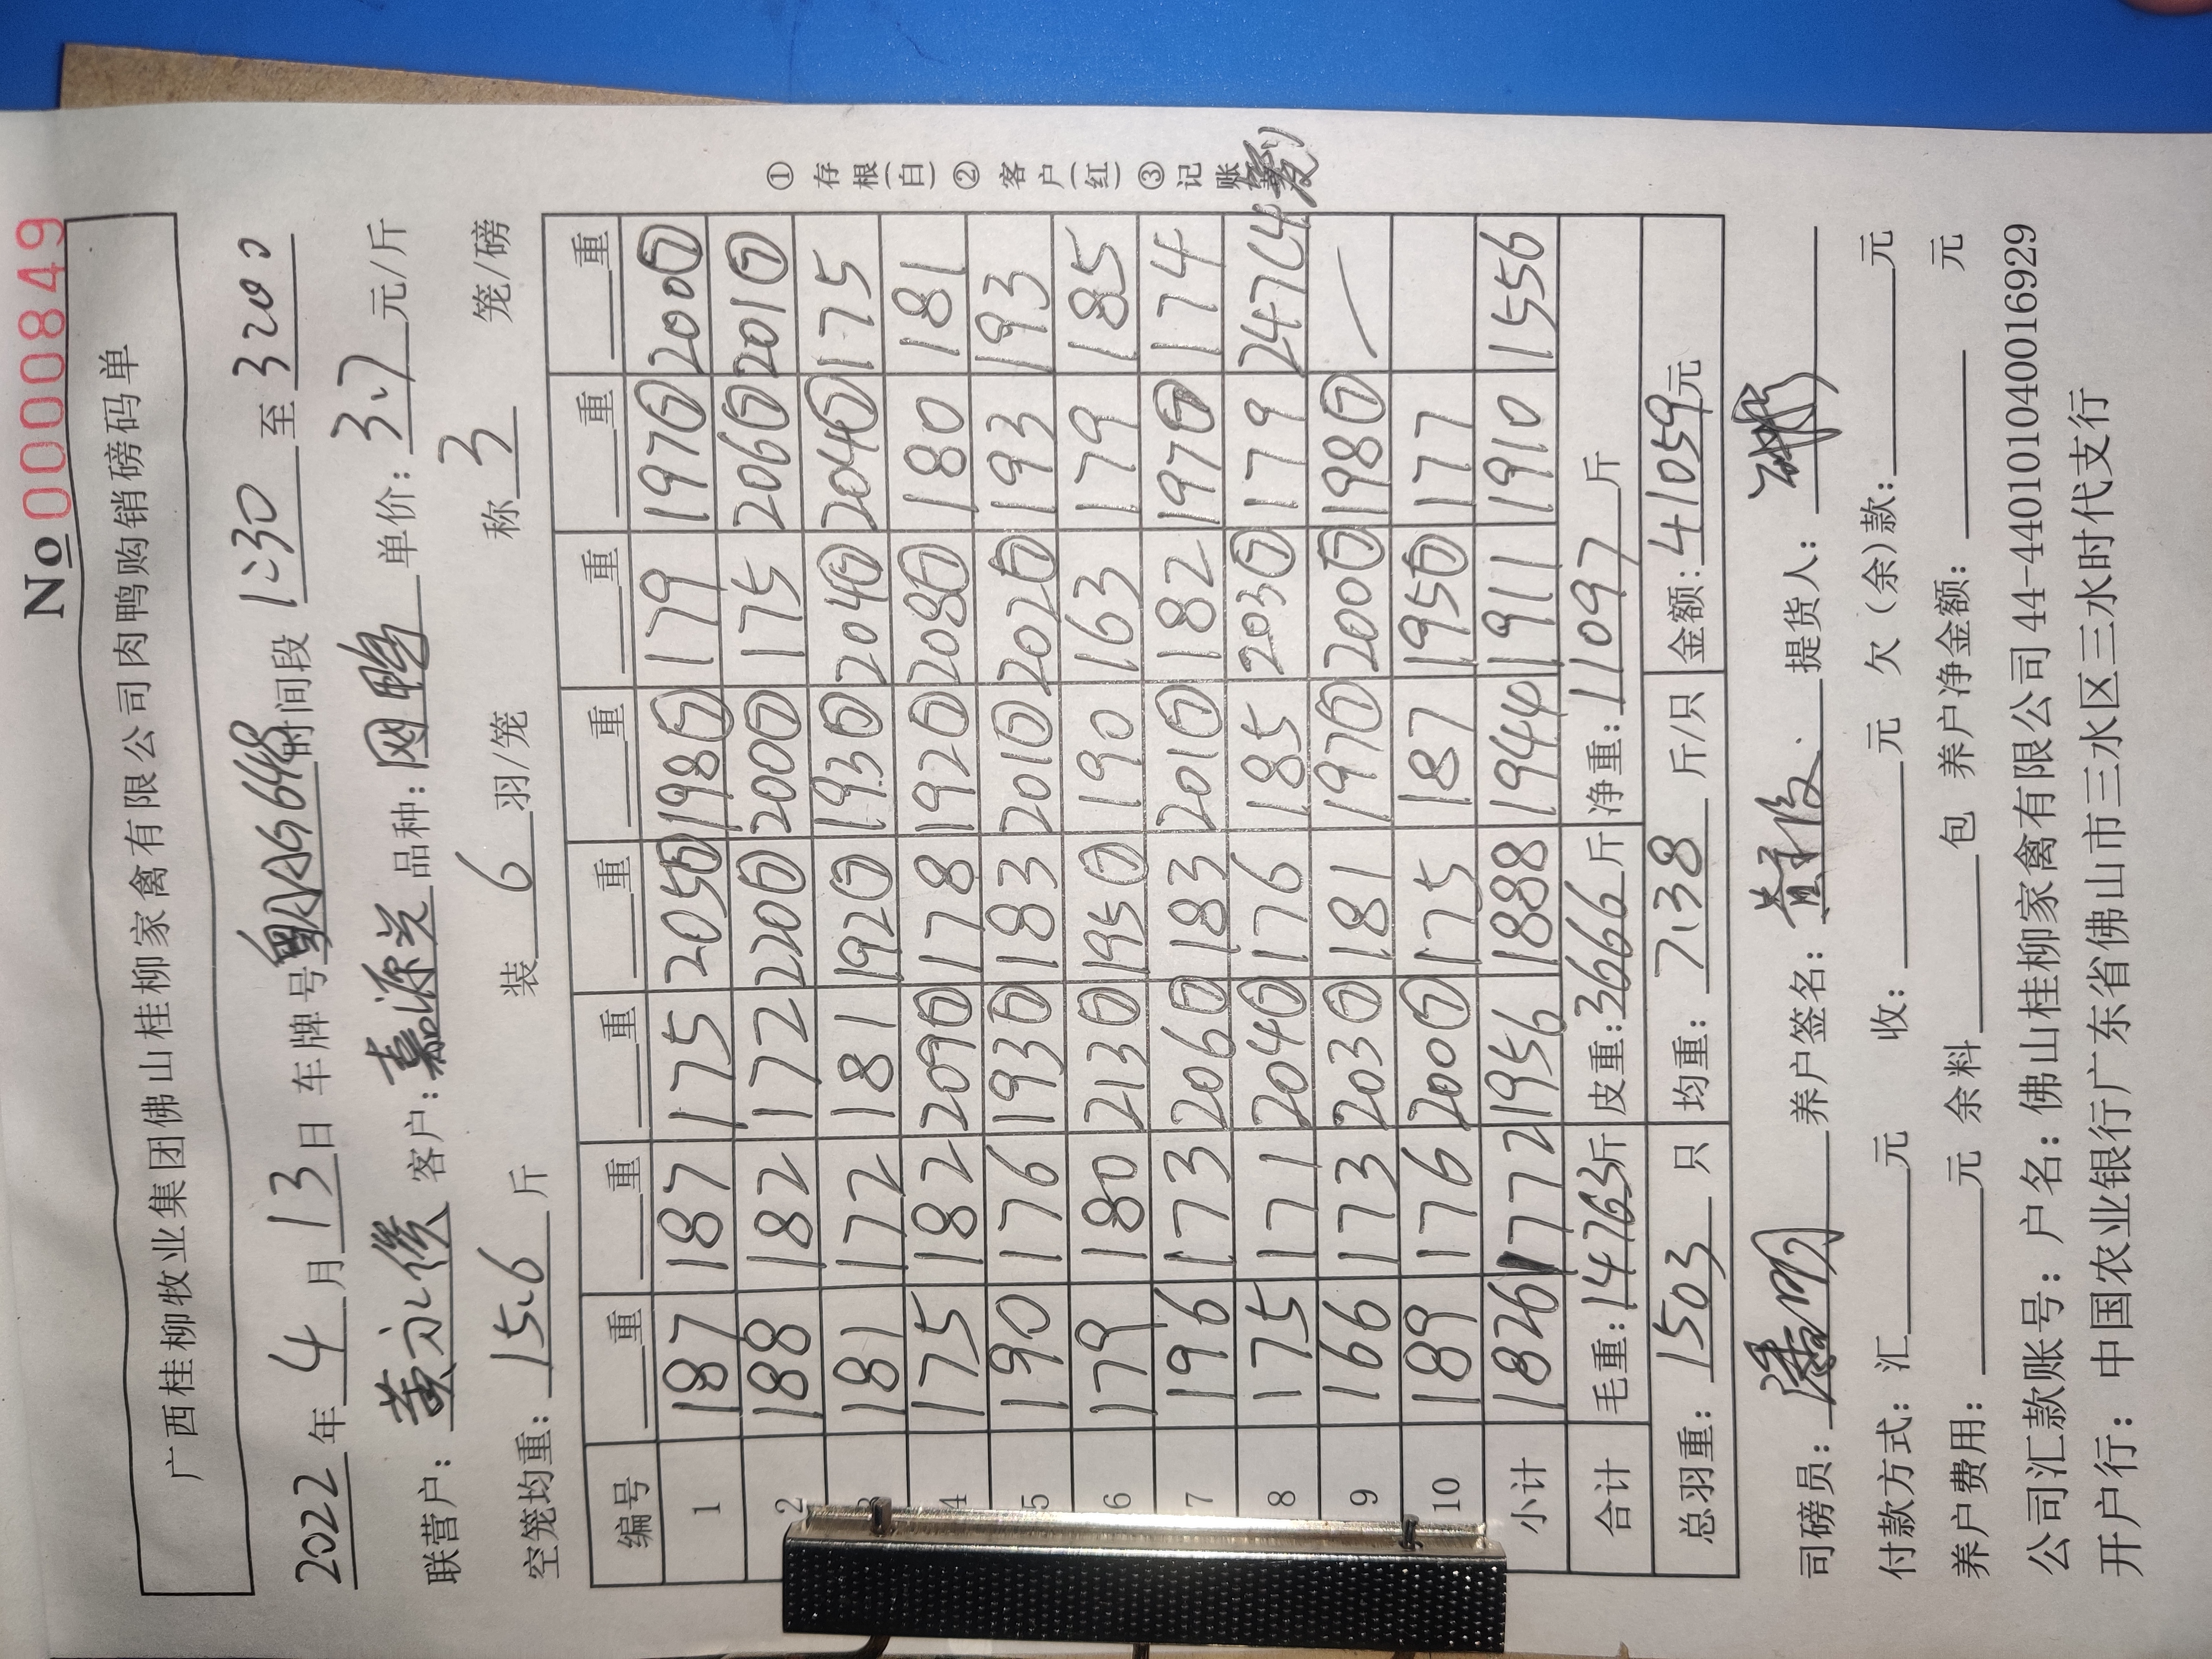 No 0000849
广西桂柳牧业集团佛山桂柳家禽有限公司肉鸭购销磅码单
2022年4月13日 车牌号粤AAG648时间段 1:30 至 3200
联营户: 客户:嘉源 品种:网鸭 单价:3.7元/斤
空笼均重:15.6斤 装6羽/笼 称3笼/磅
编号 重 重 重 重 重 重 重 重
1 187 187 175 205⑦ 198⑦ 179 197⑦ 200⑦
2 188 182 172 220⑦ 200⑦ 175 206⑦ 201⑦
3 181 172 181 192⑦ 193⑦ 204⑦ 204⑦ 175
4 175 182 209⑦ 178 192⑦ 208⑦ 180 181
5 190 176 193⑦ 183 201⑦ 202⑦ 193 193
6 179 180 213⑦ 195⑦ 190 163 179 185
7 196 173 206⑦ 183 201⑦ 182 197⑦ 174
8 175 171 204⑦ 176 185 203⑦ 179 247(4
9 166 173 203⑦ 181 197⑦ 200⑦ 198⑦
10 189 176 200⑦ 175 187 195⑦ 177
小计 1826 1772 1956 1888 1944 1911 1910 1556
合计 毛重:14763斤 皮重:3666斤 净重:11097斤
总羽重:1503只 均重:7.38斤/只 金额:41059元
① 存根(白) ② 客户(红) ③ 记账
司磅员: 养户签名: 提货人:
付款方式:汇 元 收: 元 欠(余)款: 元
养户费用: 元 余料 包 养户净金额: 元
公司汇款账号:户名:佛山桂柳家禽有限公司 44-440101040016929
开户行:中国农业银行广东省佛山市三水区三水时代支行